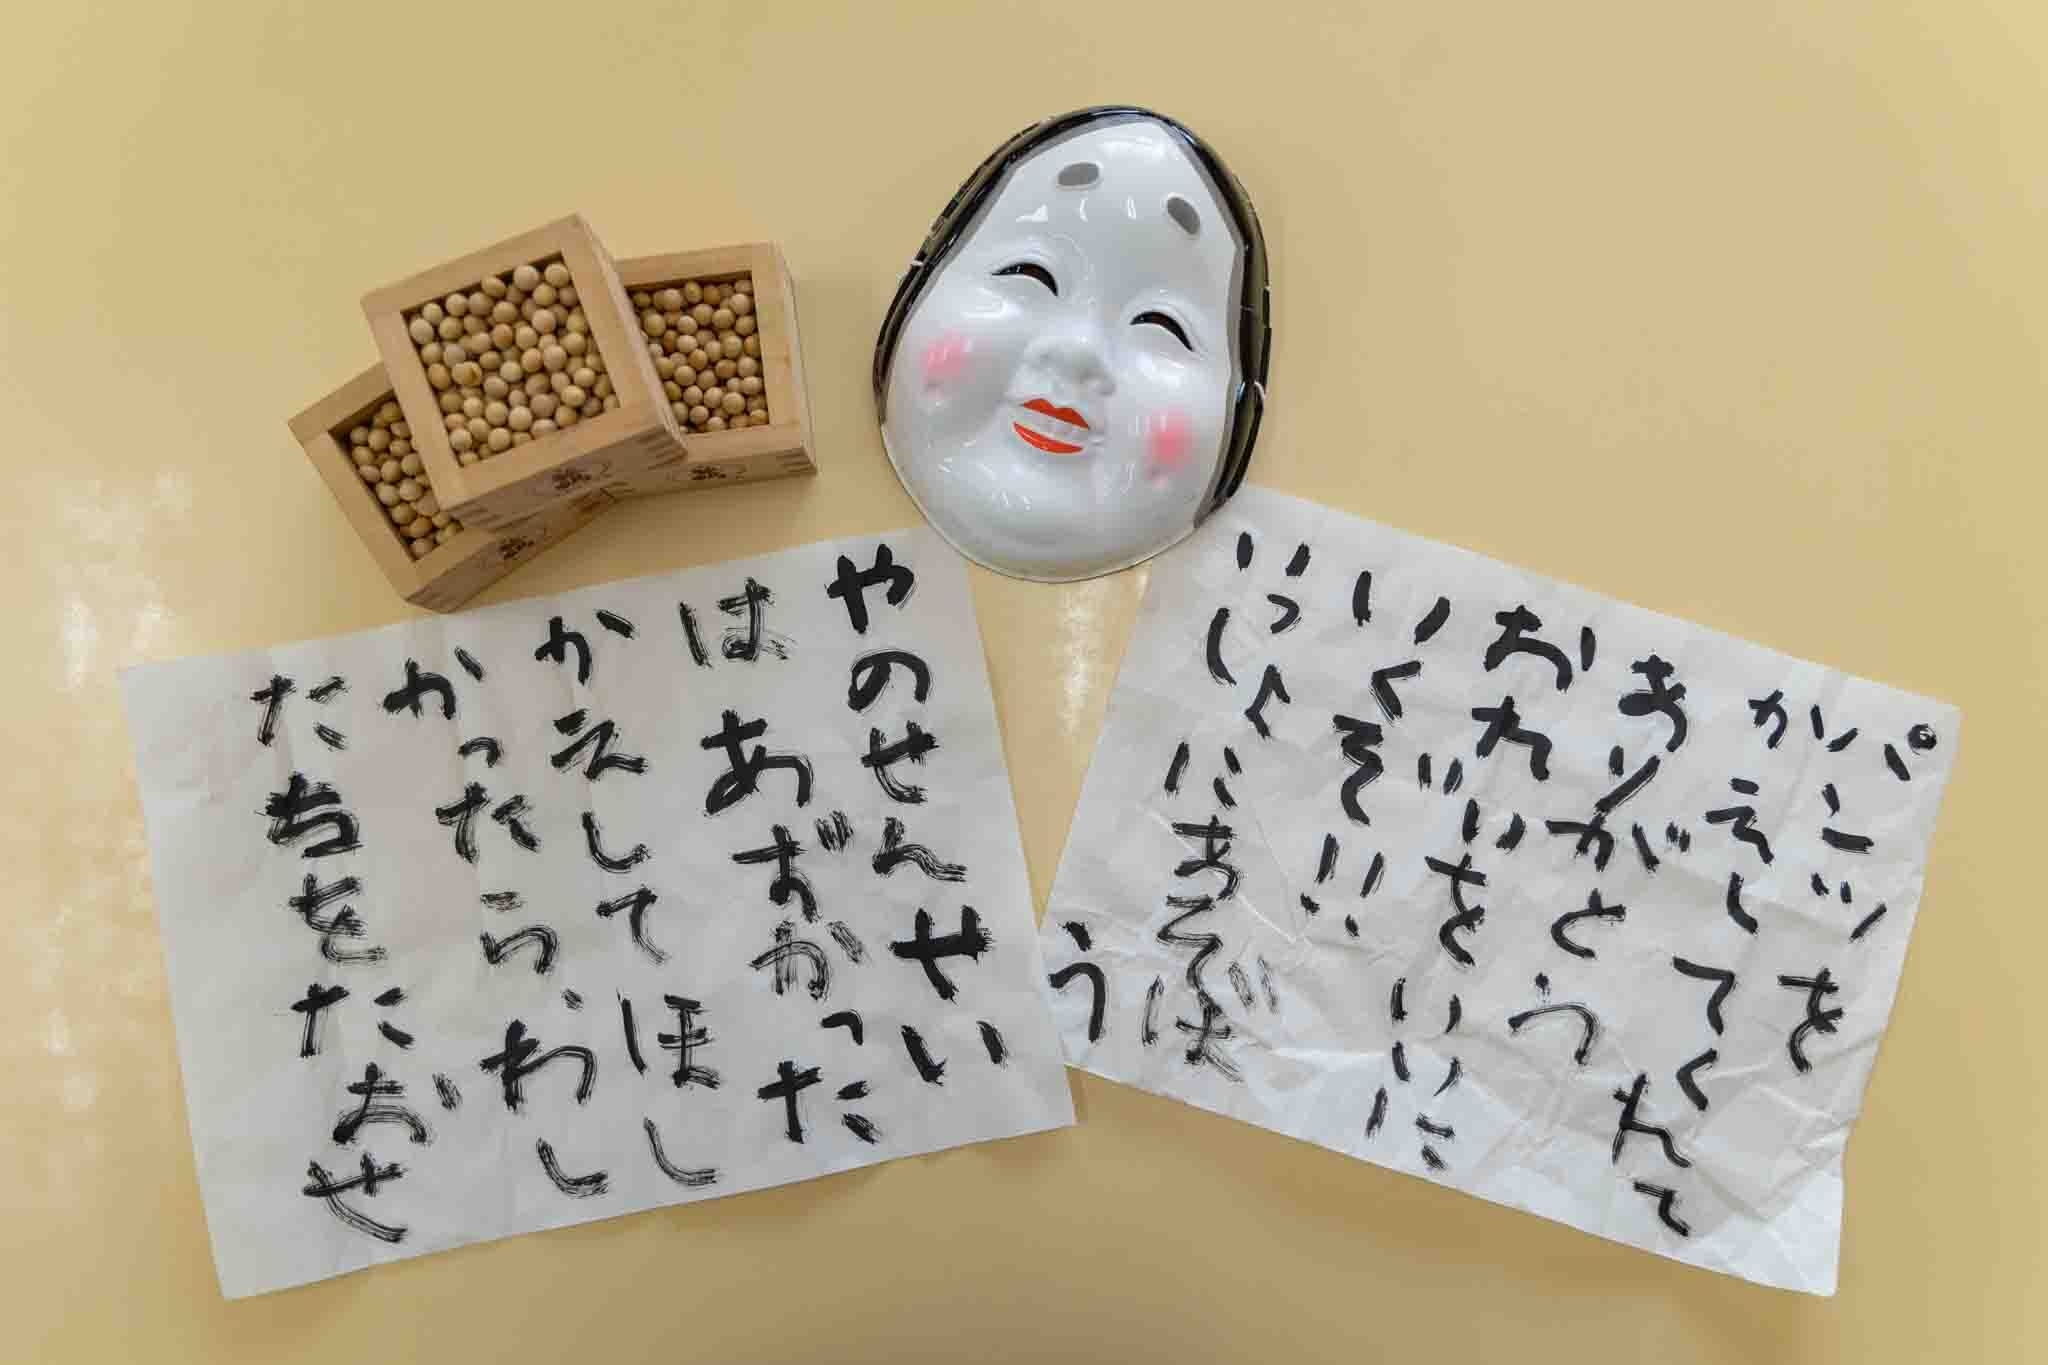 パンツを
かえしてくれて
ありがとう
おれいをいいに
いくぞ!!
いっしょにあそぼ
う
やのせんせい
はあずかった
かえしてほし
かったら、わし
たちをたおせ